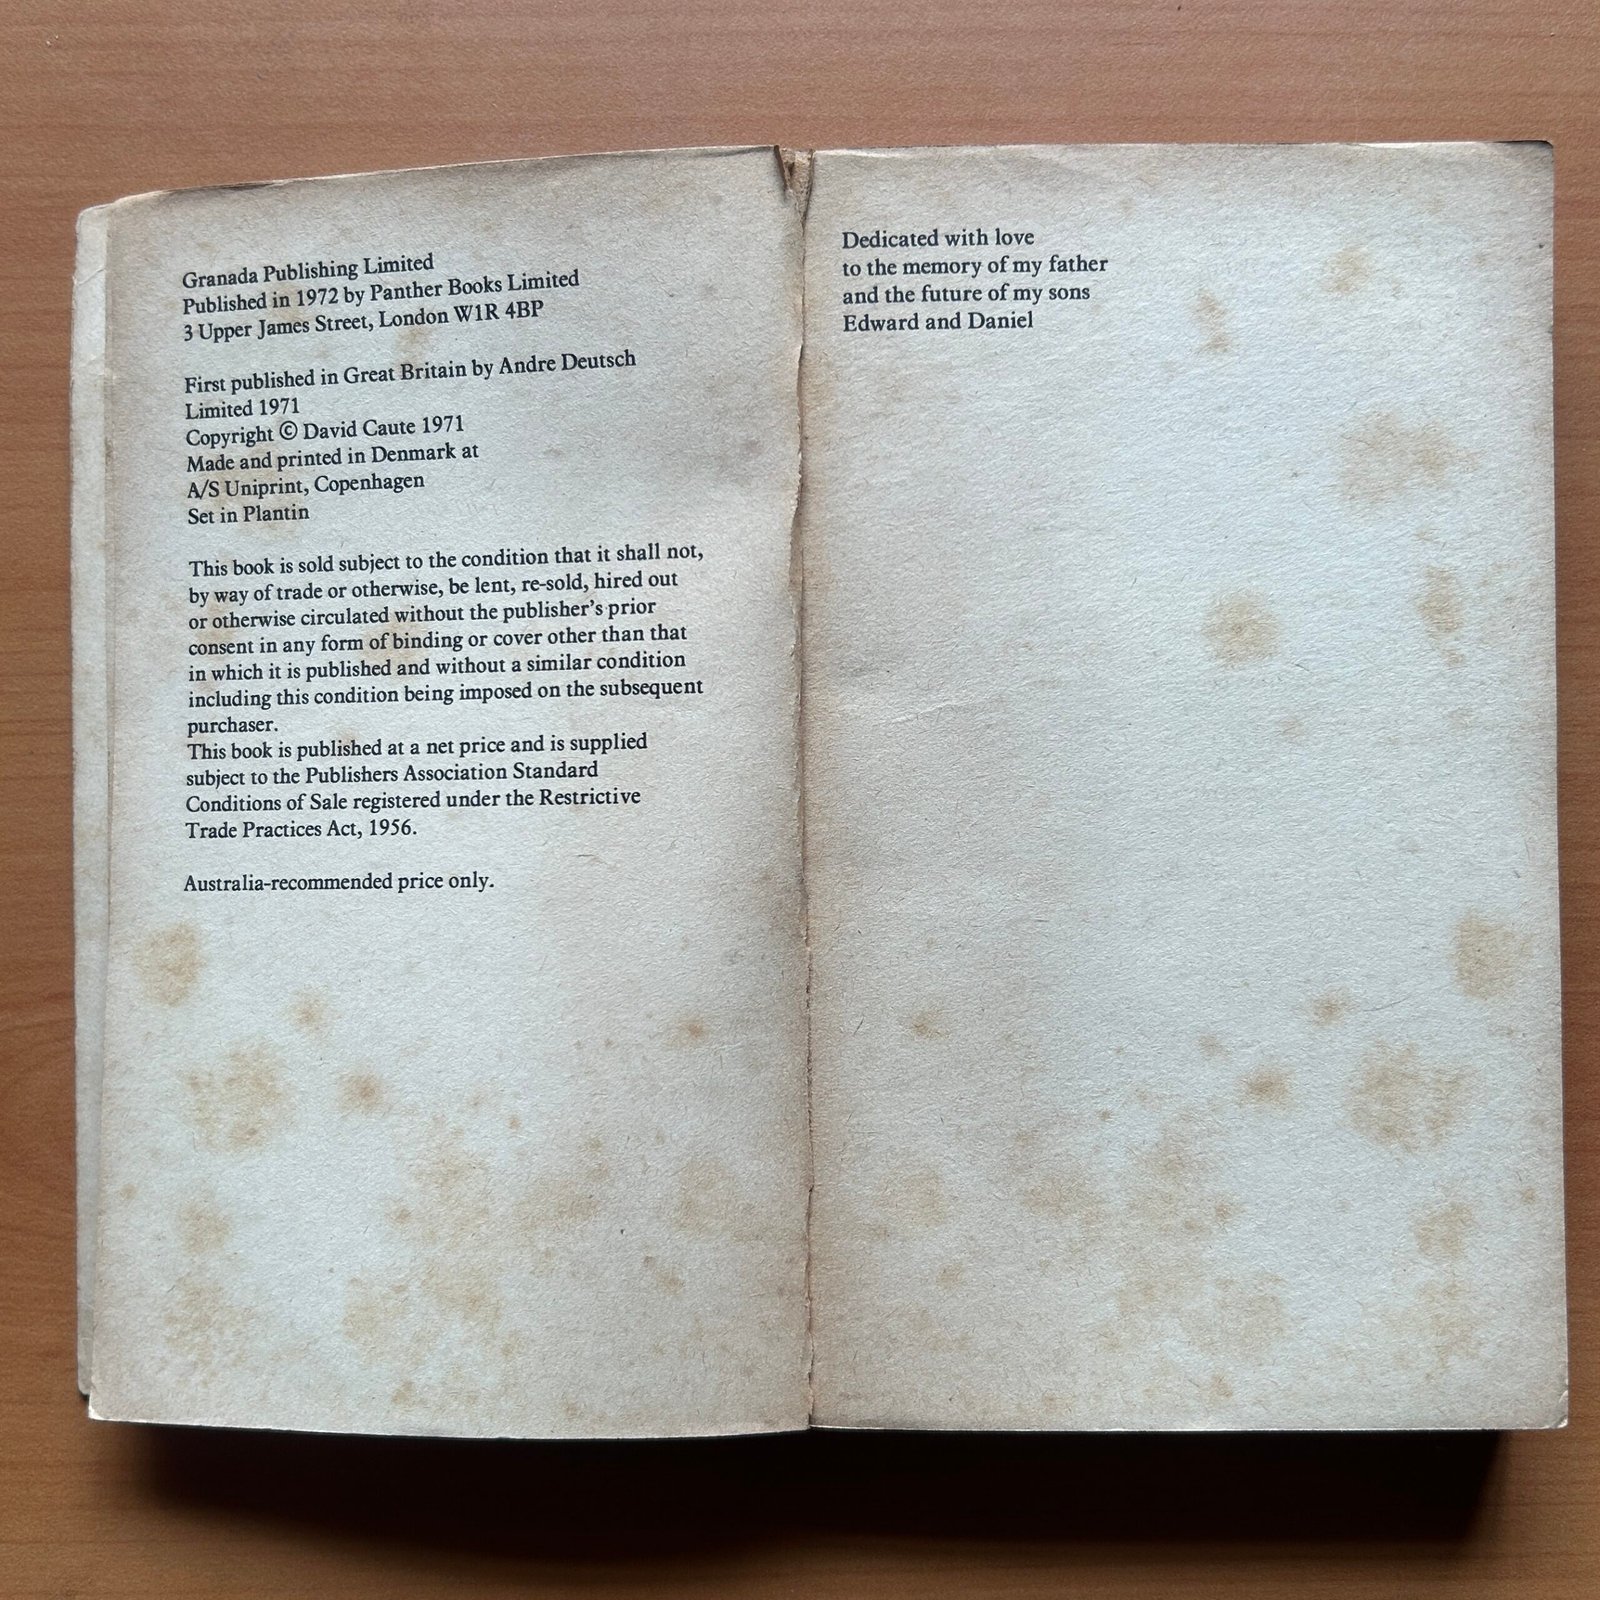 Granada Publishing Limited
Published in 1972 by Panther Books Limited
3 Upper James Street, London W1R 4BP
First published in Great Britain by Andre Deutsch
Limited 1971
Copyright © David Caute 1971
Made and printed in Denmark at
A/S Uniprint, Copenhagen
Set in Plantin
This book is sold subject to the condition that it shall not,
by way of trade or otherwise, be lent, re-sold, hired out
or otherwise circulated without the publisher's prior
consent in any form of binding or cover other than that
in which it is published and without a similar condition
including this condition being imposed on the subsequent
purchaser.
This book is published at a net price and is supplied
subject to the Publishers Association Standard
Conditions of Sale registered under the Restrictive
Trade Practices Act, 1956.
Australia-recommended price only.
Dedicated with love
to the memory of my father
and the future of my sons
Edward and Daniel